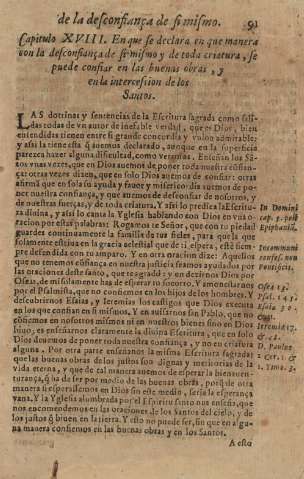 de la desconfiança de si mismo. 91
Capitulo XVIII. En que se declara en que manera
con la desconfiança de si mismo y de toda criatura, se
puede confiar en las buenas obras, y
en la intercession de los
Santos.
LAS dotrinas y sentencias de la Escritura sagrada como sali-
das todas de vn autor de inefable verdad, que es Dios, bien
entendidas tienen entre si grande concordia y valor admirable:
y assi la tiene esta q̃ auemos declarado, aunque en la superficie
parezca hazer alguna dificultad, como veremos. Enseñan los Sã-
tos vnas vezes, que en Dios auemos de poner toda nuestra cõfian-
ça: otras vezes dizen, que en solo Dios auemos de confiar: otras
afirmã que en sola su ayuda y fauor y misericordia auemos de po-
ner nuestra confiança, y que auemos de desconfiar de nosotros, y
de nuestras fuerças, y de toda criatura. Y assi lo predica la Escritu-
ra diuina, y assi lo canta la Yglesia hablando con Dios en vna o-
racion por estas palabras: Rogamos te Señor, que con tu piedad
guardes continuamente la familia tuya fiel, para que la que
solamente estriua en la gracia celestial que de ti espera, esté siem-
pre defendida con tu amparo. Y en otra oracion dize: Aquellos
que no tenemos cõfiança en nuestra justicia seamos ayudados por
las oraciones deste santo, que te agradó: y en dezirnos Dios por
Oseas, de mi solamente has de esperar tu socorro. Y amonestarnos
por el Psalmista, que no confiemos en los hijos de los hombres. Y
descubrirnos Esaias, y Ieremias los castigos que Dios executa
en los que confian en si mismos. Y en auisarnos san Pablo, que no
confiemos en nosotros mismos ni en nuestros bienes sino en Dios
biuo, es enseñarnos claramente la diuina Escritura, que en solo
Dios deuemos de poner toda nuestra confiança, y no en criatura
alguna. Por otra parte enseñanos la misma Escritura sagrada
que las buenas obras de los justos son dignas y meritorias de la
vida eterna, y que de tal manera auemos de esperar la bienauen-
turança, q̃ ha de ser por medio de las buenas obras, porq̃ de otra
manera si esperassemos en Dios sin este medio, seria la esperança
vana. Y la Yglesia alumbrada por el Espiritu santo nos enseña, que
nos encomendemos en las oraciones de los Santos del cielo, y de
los justos q̃ biuen en la tierra. Y esto no puede ser, sin que en algu-
na manera confiemos en las buenas obras y en los Santos.
A esto
In Dominica
cap. 5. post
Epiphaniã.
In communi
confes. non
Pontificis.
Osea 13.
Psal. 145.
Esaia 30.
Ieremia 17.
D. Paulus
2. Cor. 1. &
1. Timo. 3.